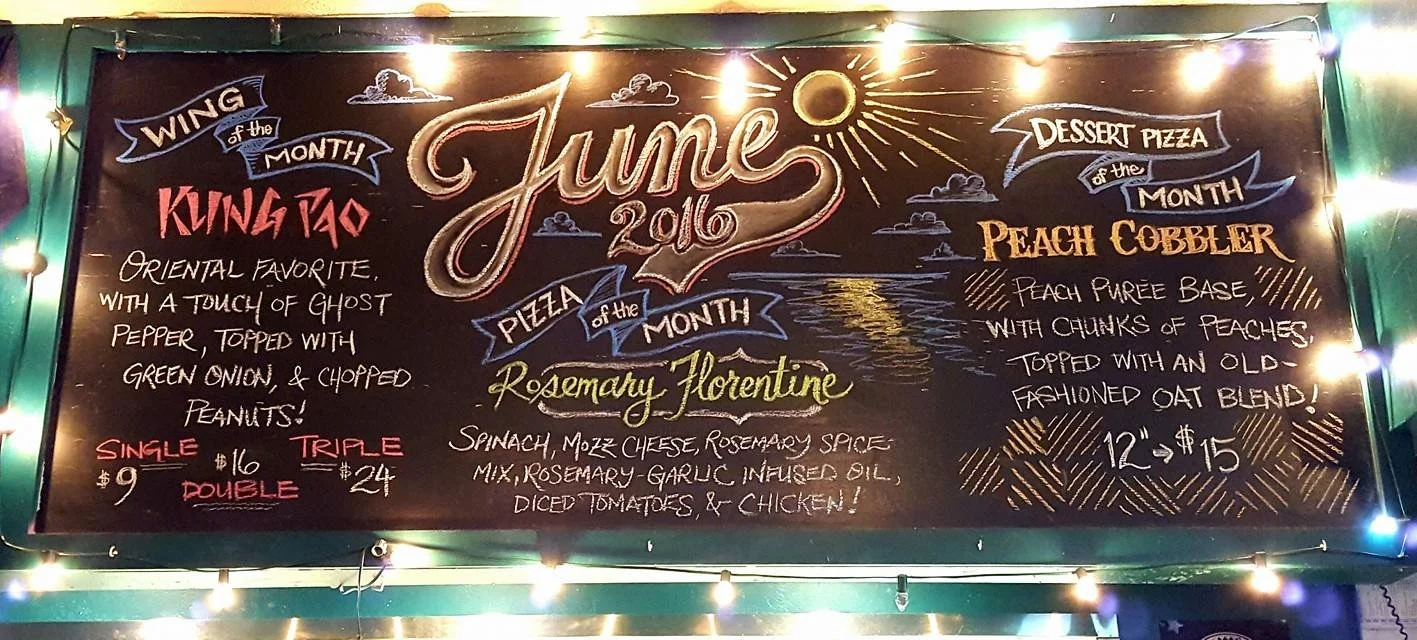 WING
of the
MONTH
KUNG PAO
ORIENTAL FAVORITE,
WITH A TOUCH OF GHOST
PEPPER, TOPPED WITH
GREEN ONION, & CHOPPED
PEANUTS!
SINGLE
$9
$16
DOUBLE
TRIPLE
$24
June
2016
PIZZA
of the
MONTH
Rosemary Florentine
SPINACH, MOZZ CHEESE, ROSEMARY SPICE
MIX, ROSEMARY-GARLIC INFUSED OIL,
DICED TOMATOES, & CHICKEN!
DESSERT PIZZA
of the
MONTH
PEACH COBBLER
PEACH PURÉE BASE,
WITH CHUNKS OF PEACHES,
TOPPED WITH AN OLD-
FASHIONED OAT BLEND!
12" → $15